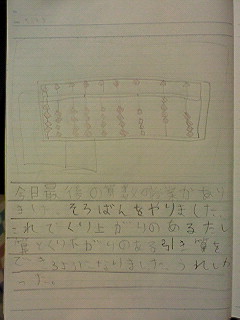 今日最後の算数の時間があり
ました。そろばんをやりました。
これでくり上がりのあるたし
算とくり下がりのある引き算を
できるようになりました。うれしか
った。